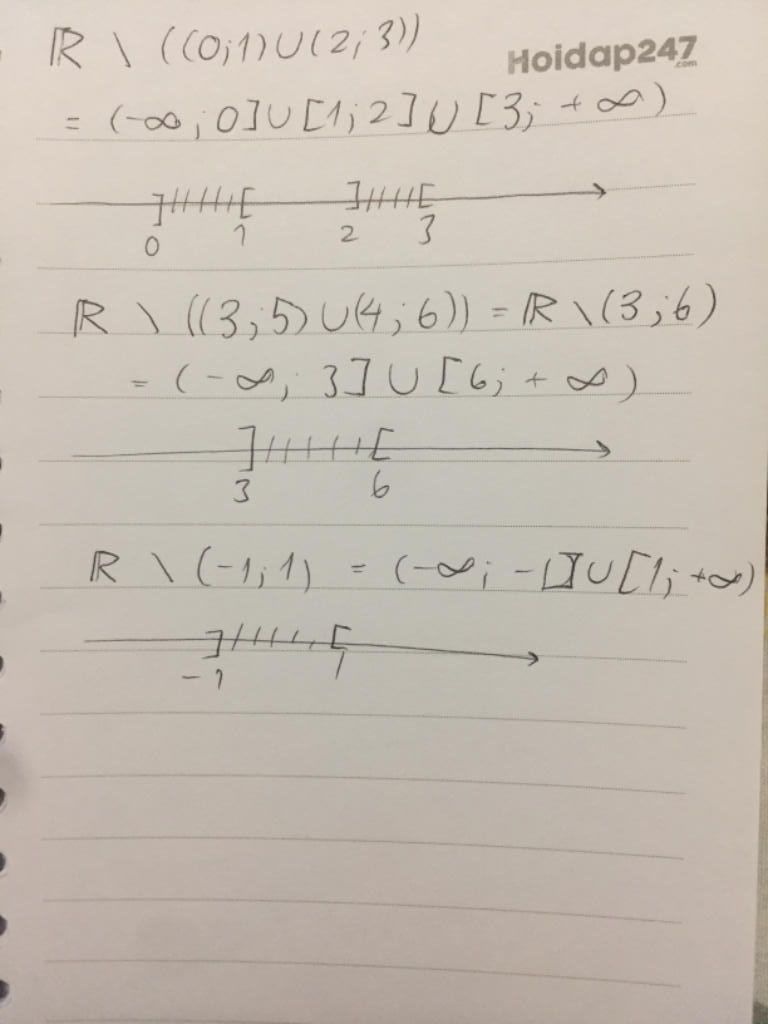 ℝ \ ((0;1)∪(2;3))
Hoidap247
.com
= (-∞; 0]∪[1;2]∪[3; +∞)
0 1 2 3
ℝ \ ((3;5)∪(4;6)) = ℝ\(3;6)
= (-∞; 3]∪[6; +∞)
3 6
ℝ \ (-1;1) = (-∞; -1]∪[1; +∞)
-1 1